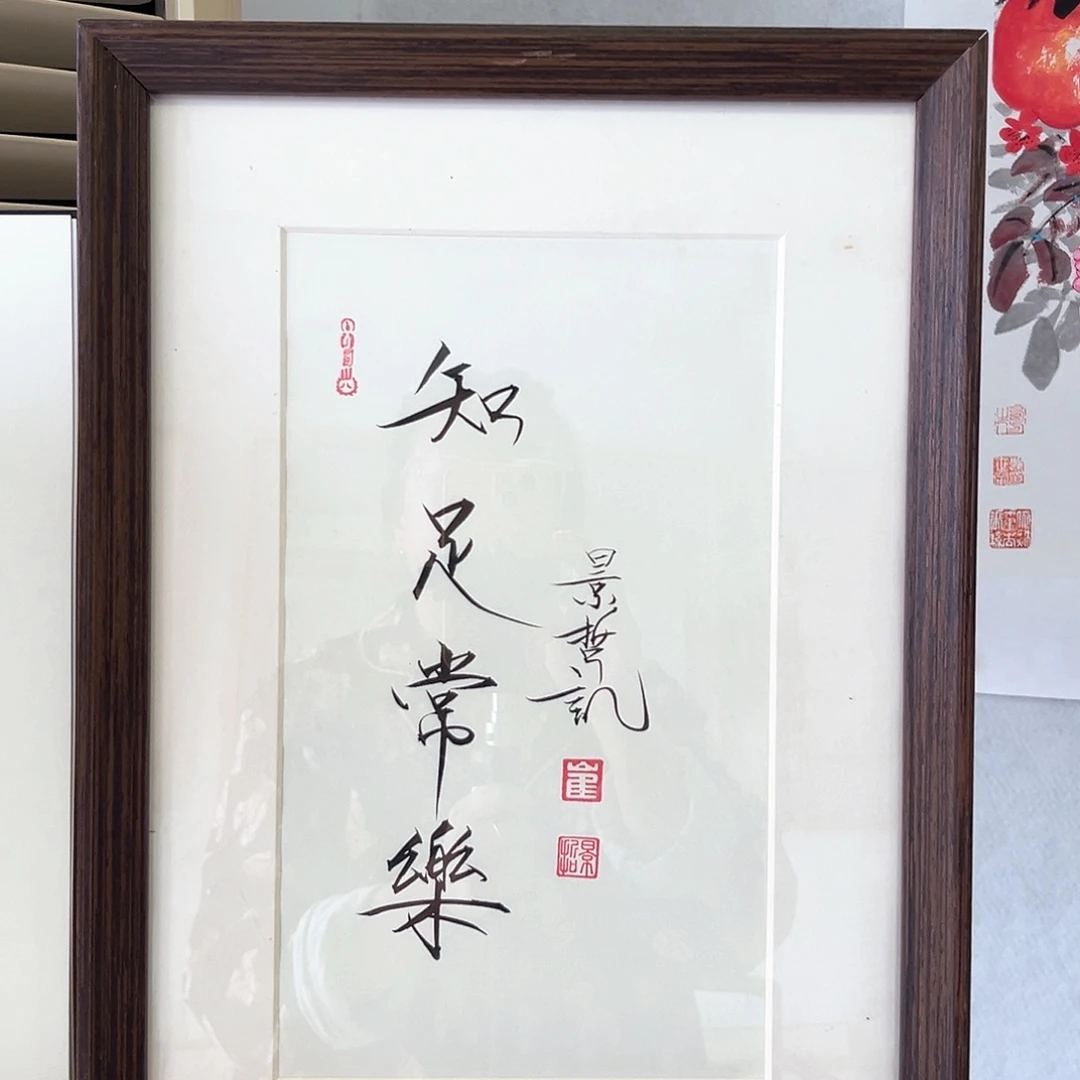 知足常樂
景哲記
崔